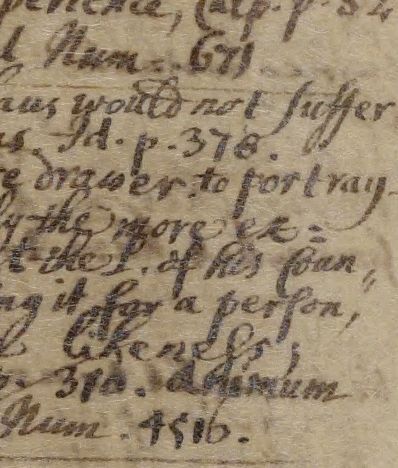 perience, Calp. p. 34
Num. 671
aus would not suffer
us. Id. p. 378.
e drawer to portray
ly the more ex=
t the P. of his Coun„
ng it for a person,
likeness;
p. 310. Animum
Num. 4510.